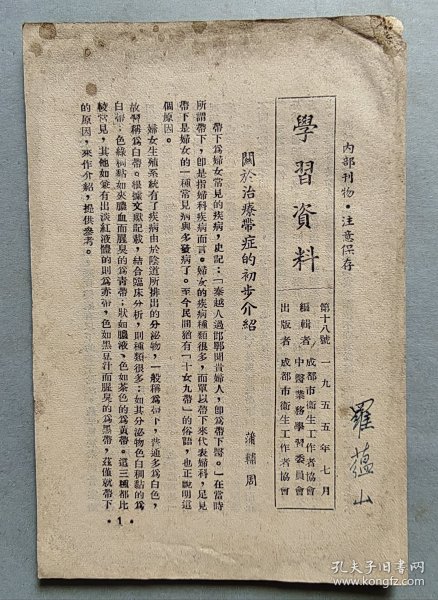 內部刊物・注意保存
學習資料
第十八號　一九五五年七月
編輯者　成都市衛生工作者協會
中醫業務學習委員會
出版者　成都市衛生工作者協會
羅蘊山
關於治療帶症的初步介紹
蒲輔周
帶下爲婦女常見的疾病，史記：「秦越人過邯鄲聞貴婦人，即爲帶下醫。」在當時
所謂帶下，卽是指婦科疾病而言。婦女的疾病種類很多，而單以帶下來代表婦科，足見
帶下是婦女的一種常見病與多發病了。至今民間猶有「十女九帶」的俗語，也正說明這
個原因。
婦女生殖系統有了疾病由於陰道所排出的分泌物，一般稱爲帶下，普通多爲白色，
故習稱爲白帶。根據文獻記載，結合臨床分析，則種類很多：如其分泌物色白稠黏的爲
白帶；色綠稠黏如夾膿血而腥臭的爲青帶；狀如膿液、色如茶色的爲黃帶。這三種都比
較常見，其他如兼有出淡紅液體的則爲赤帶，色如黑豆汁而腥臭的爲黑帶，茲僅就帶下
的原因，來作介紹，提供參考。
・1・
孔夫子旧书网
www.kongfz.com